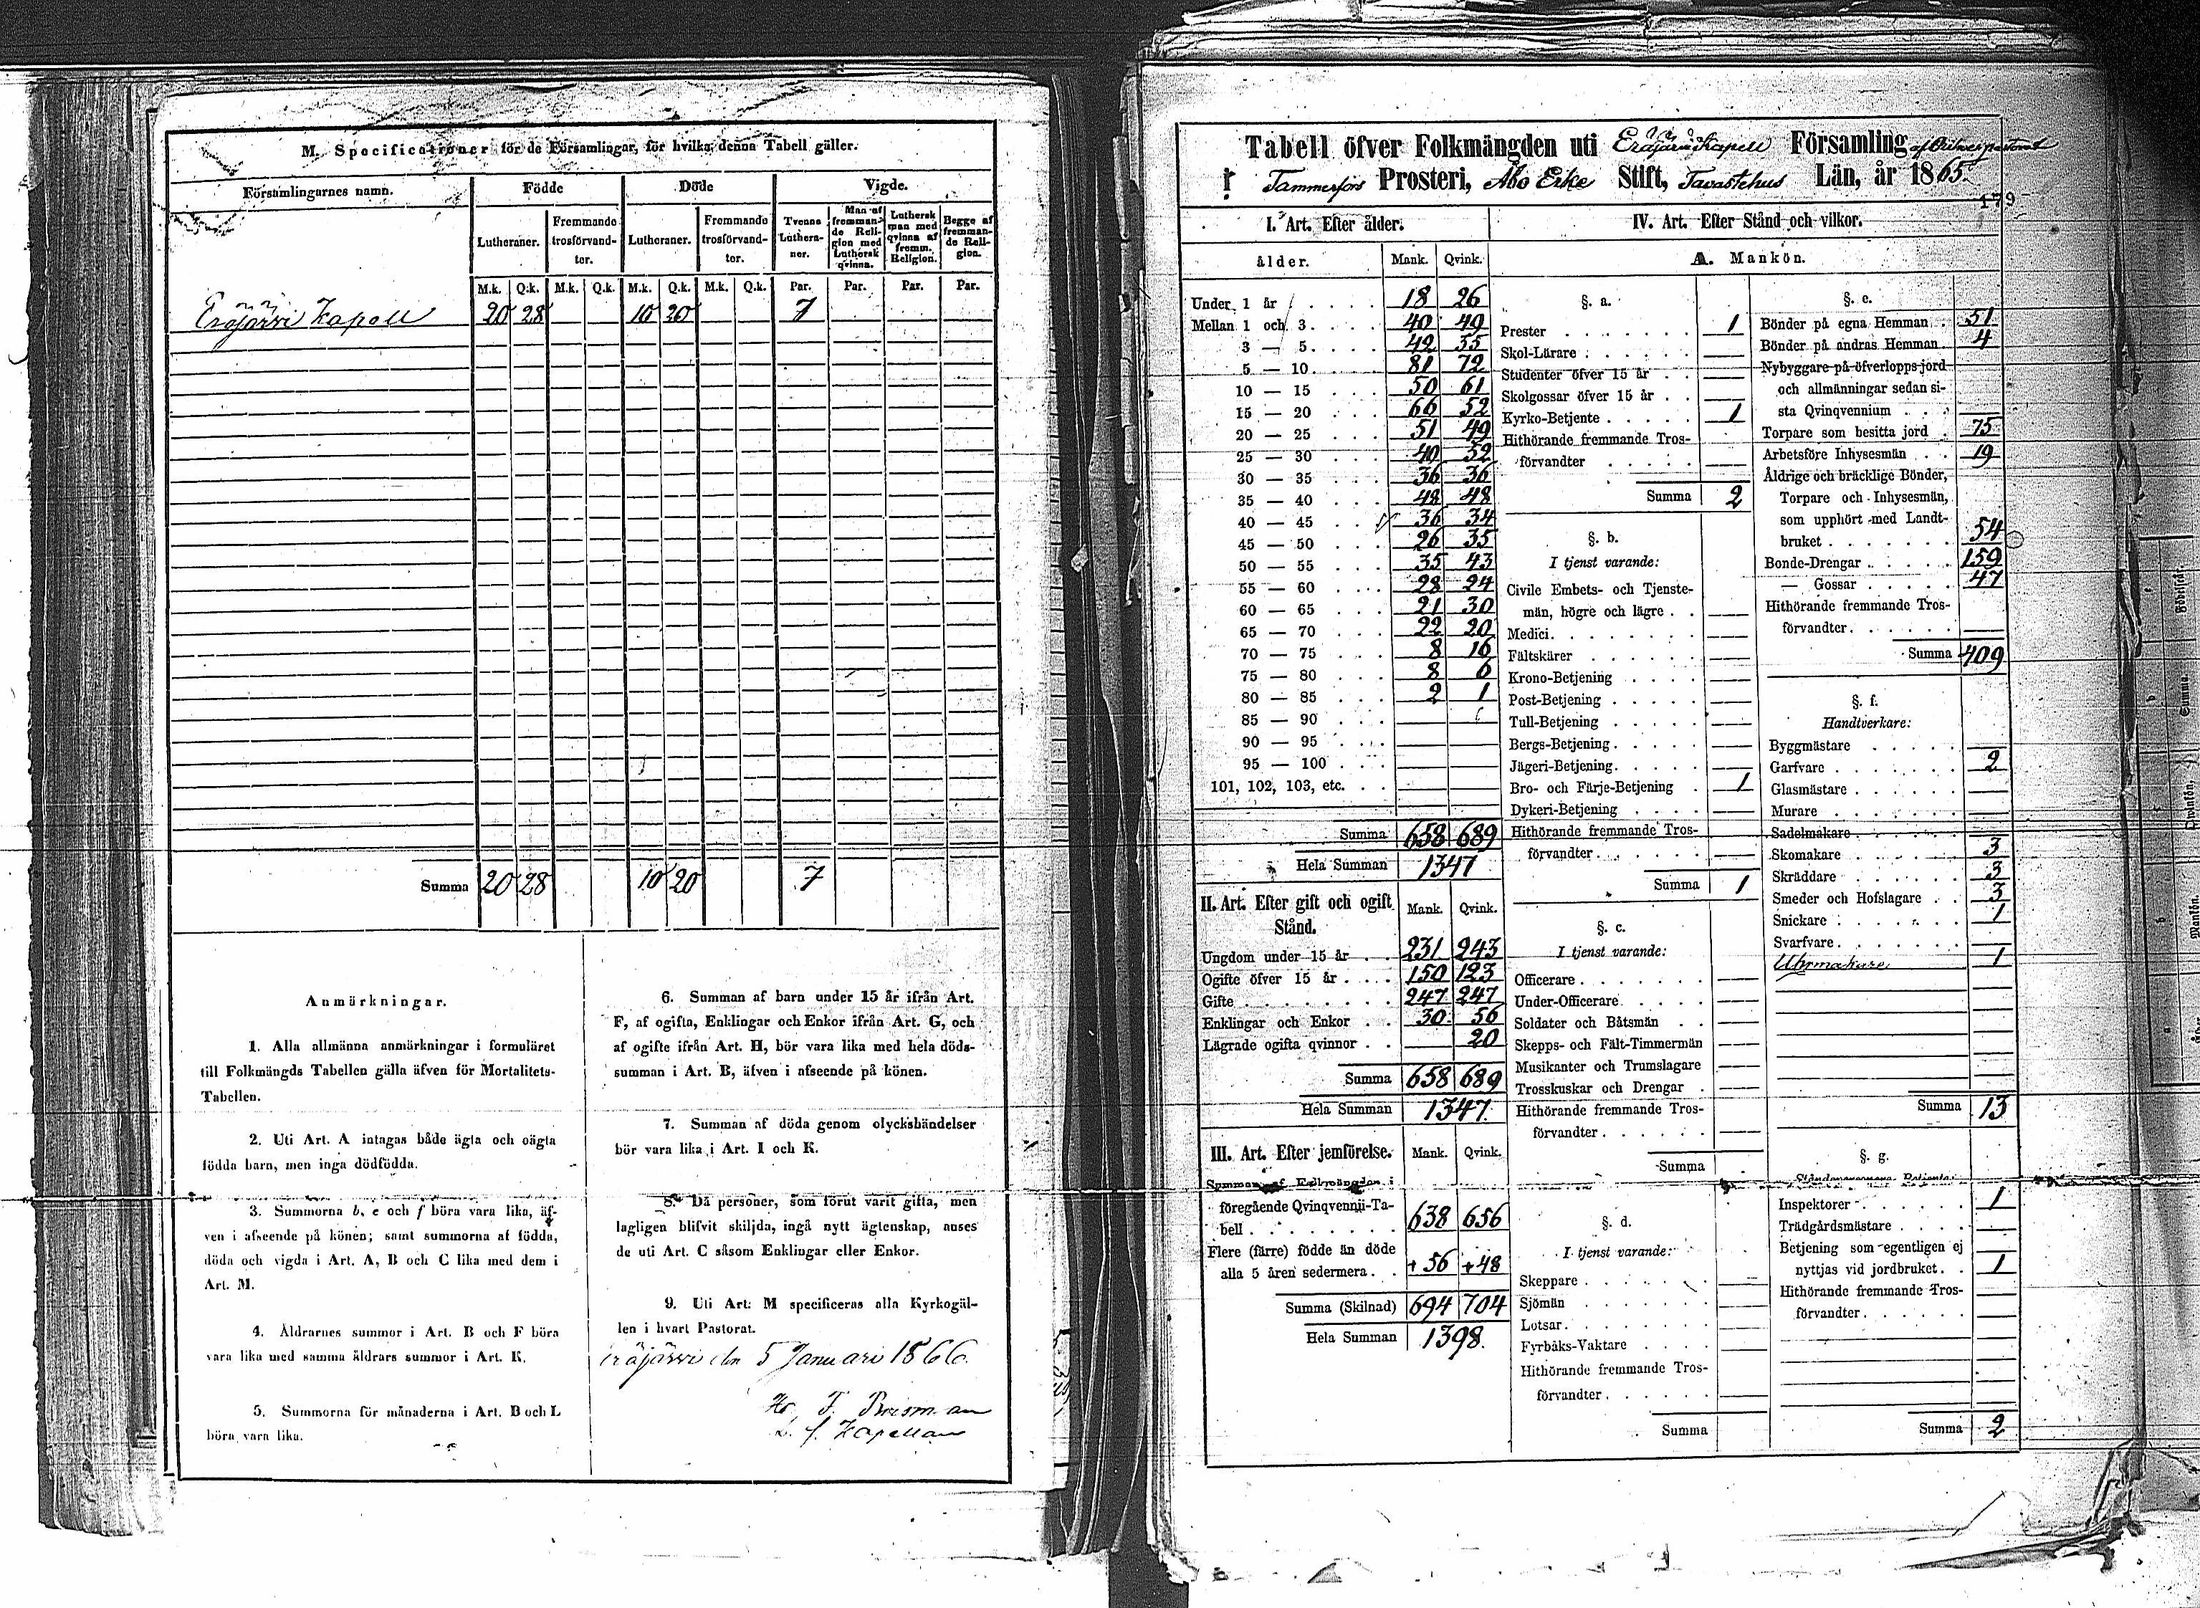 M. Specificationer för de Församlingar, för hvilka denna Tabell gäller.
Församlingarnes namn. Födde Döde Vigde.
Lutheraner. Fremmande trosförvandter. Lutheraner. Fremmande trosförvandter. Tvenne Lutheraner. Man af fremmande Religion med Luthersk qvinna. Luthersk man med qvinna af fremm. Religion. Begge af fremmande Religion.
M.k. Q.k. M.k. Q.k. M.k. Q.k. M.k. Q.k. Par. Par. Par. Par.
Eräjärvi Kapell 20 28 10 20 7
Summa 20 28 10 20 7
Anmärkningar.
1. Alla allmänna anmärkningar i formuläret
till Folkmängds Tabellen gälla äfven för Mortalitets-
Tabellen.
2. Uti Art. A intagas både ägta och oägta
födda barn, men inga dödfödda.
3. Summorna b, e och f böra vara lika, äf-
ven i afseende på könen; samt summorna af födda,
döda och vigda i Art. A, B och C lika med dem i
Art. M.
4. Åldrarnes summor i Art. B och F böra
vara lika med samma åldrars summor i Art. K.
5. Summorna för månaderna i Art. B och L
böra vara lika.
6. Summan af barn under 15 år ifrån Art.
F, af ogifta, Enklingar och Enkor ifrån Art. G, och
af ogifte ifrån Art. H, bör vara lika med hela döds-
summan i Art. B, äfven i afseende på könen.
7. Summan af döda genom olyckshändelser
bör vara lika i Art. I och K.
8. Då personer, som förut varit gifta, men
lagligen blifvit skiljda, ingå nytt ägtenskap, anses
de uti Art. C såsom Enklingar eller Enkor.
9. Uti Art. M specificeras alla Kyrkogäl-
len i hvart Pastorat.
Eräjärvi den 5 Januari 1866.
Kapellan
Tabell öfver Folkmängden uti Eräjärvi Kapell Församling af
Tammerfors Prosteri, Åbo Erke Stift, Tavastehus Län, år 1865.
179
I. Art. Efter ålder.
ålder. Mank. Qvink.
Under 1 år 18 26
Mellan 1 och 3 40 49
3 — 5 42 35
5 — 10 81 72
10 — 15 50 61
15 — 20 66 52
20 — 25 51 49
25 — 30 40 52
30 — 35 36 36
35 — 40 48 48
40 — 45 36 34
45 — 50 26 35
50 — 55 35 43
55 — 60 28 24
60 — 65 21 30
65 — 70 22 20
70 — 75 8 16
75 — 80 8 6
80 — 85 2 1
85 — 90
90 — 95
95 — 100
101, 102, 103, etc.
Summa 658 689
Hela Summan 1347
II. Art. Efter gift och ogift Stånd. Mank. Qvink.
Ungdom under 15 år 231 243
Ogifte öfver 15 år 150 123
Gifte 247 247
Enklingar och Enkor 30 56
Lägrade ogifta qvinnor 20
Summa 658 689
Hela Summan 1347.
III. Art. Efter jemförelse. Mank. Qvink.
Summan af Folkmängden i
föregående Qvinqvennii-Ta-
bell 638 656
Flere (färre) födde än döde
alla 5 åren sedermera +56 +48
Summa (Skilnad) 694 704
Hela Summan 1398.
IV. Art. Efter Stånd och vilkor.
A. Mankön.
§. a.
Prester 1
Skol-Lärare
Studenter öfver 15 år
Skolgossar öfver 15 år
Kyrko-Betjente 1
Hithörande fremmande Tros-
förvandter
Summa 2
§. b.
I tjenst varande:
Civile Embets- och Tjenste-
män, högre och lägre
Medici
Fältskärer
Krono-Betjening
Post-Betjening
Tull-Betjening
Bergs-Betjening
Jägeri-Betjening
Bro- och Färje-Betjening 1
Dykeri-Betjening
Hithörande fremmande Tros-
förvandter
Summa 1
§. c.
I tjenst varande:
Officerare
Under-Officerare
Soldater och Båtsmän
Skepps- och Fält-Timmermän
Musikanter och Trumslagare
Trosskuskar och Drengar
Hithörande fremmande Tros-
förvandter
Summa
§. d.
I tjenst varande:
Skeppare
Sjömän
Lotsar
Fyrbåks-Vaktare
Hithörande fremmande Tros-
förvandter
Summa
§. e.
Bönder på egna Hemman 51
Bönder på andras Hemman 4
Nybyggare på öfverloppsjord
och allmänningar sedan si-
sta Qvinqvennium
Torpare som besitta jord 75
Arbetsföre Inhysesmän 19
Åldrige och bräcklige Bönder,
Torpare och Inhysesmän,
som upphört med Landt-
bruket 54
Bonde-Drengar 159
— Gossar 47
Hithörande fremmande Tros-
förvandter
Summa 409
§. f.
Handtverkare:
Byggmästare
Garfvare 2
Glasmästare
Murare
Sadelmakare
Skomakare 3
Skräddare 3
Smeder och Hofslagare 3
Snickare 1
Svarfvare
Uhrmakare 1
Summa 13
§. g.
Ståndspersoners Betjente:
Inspektorer 1
Trädgårdsmästare
Betjening som egentligen ej
nyttjas vid jordbruket 1
Hithörande fremmande Tros-
förvandter
Summa 2